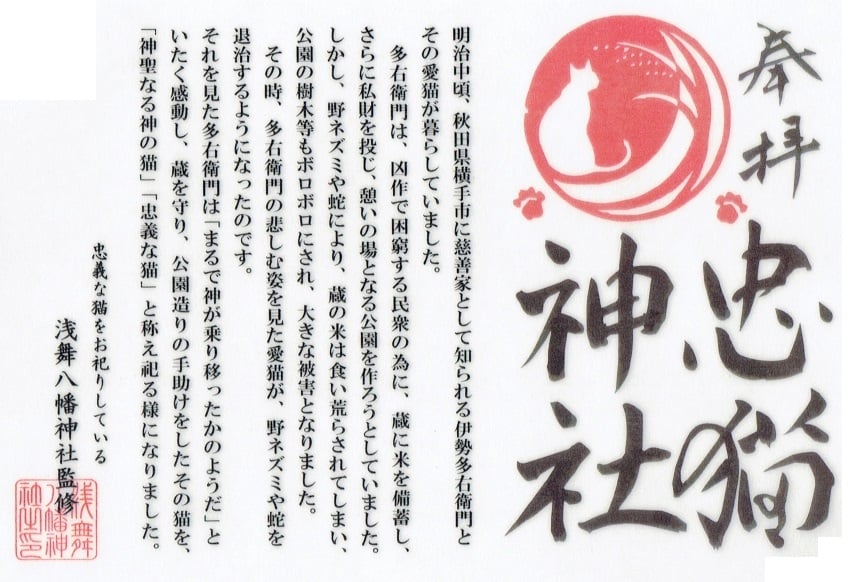 奉拝
忠猫
神社
明治中頃、秋田県横手市に慈善家として知られる伊勢多右衛門と
その愛猫が暮らしていました。
多右衛門は、凶作で困窮する民衆の為に、蔵に米を備蓄し、
さらに私財を投じ、憩いの場となる公園を作ろうとしていました。
しかし、野ネズミや蛇により、蔵の米は食い荒らされてしまい、
公園の樹木等もボロボロにされ、大きな被害となりました。
その時、多右衛門の悲しむ姿を見た愛猫が、野ネズミや蛇を
退治するようになったのです。
それを見た多右衛門は「まるで神が乗り移ったかのようだ」と
いたく感動し、蔵を守り、公園造りの手助けをしたその猫を、
「神聖なる神の猫」「忠義な猫」と称え祀る様になりました。
忠義な猫をお祀りしている
浅舞八幡神社監修
浅舞
八幡神
社之印